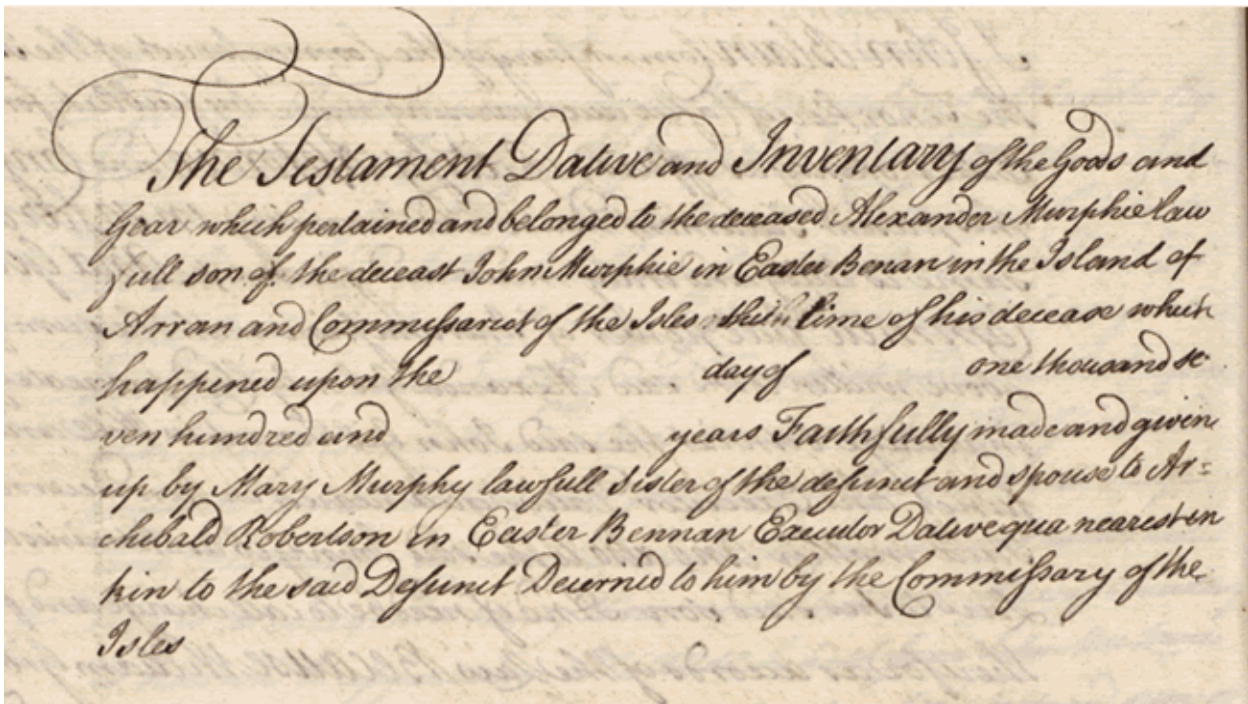 The Testament Dative and Inventary of the Goods and
Gear which pertained and belonged to the deceased Alexander Murphie law
full son of the deceast John Murphie in Easter Benan in the Island of
Arran and Commissariot of the Isles time of his decease which
happened upon the day of one thousand se
ven hundred and years Faithfully made and given
up by Mary Murphy lawfull Sister of the defunct and spouse to Ar=
chibald Robertson in Easter Bennan Executor Dative qua nearest in
kin to the said Defunct Decerned to him by the Commissary of the
Isles